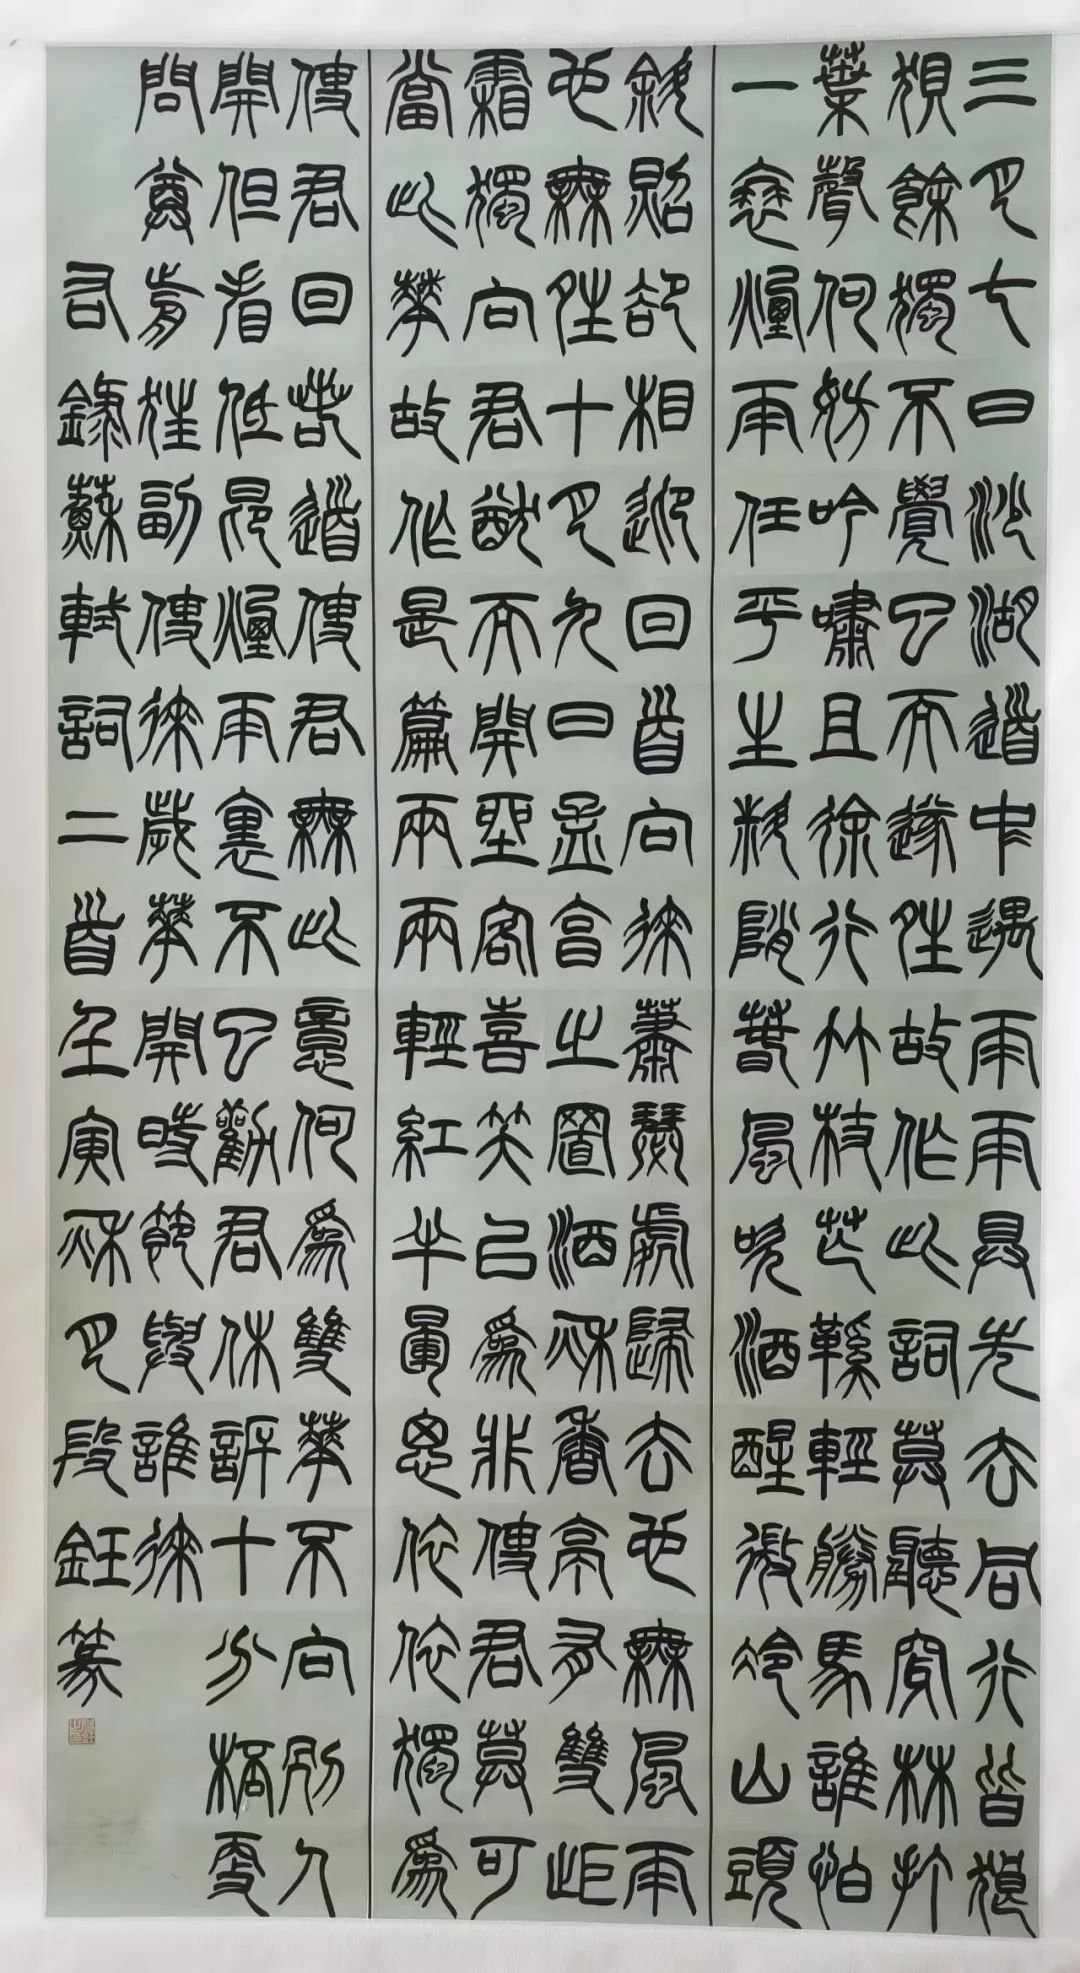 三月七日沙湖道中遇雨雨具先去同行皆狼
狽餘獨不覺已而遂晴故作此詞莫聽穿林打
葉聲何妨吟嘯且徐行竹杖芒鞋輕勝馬誰怕
一蓑煙雨任平生料峭春風吹酒醒微冷山頭
斜照卻相迎回首向來蕭瑟處歸去也無風雨
也無晴十月九日孟亨之置酒秋香亭有雙拒
霜獨向君猷而開坐客喜笑以為非使君莫可
當此華故作是篇兩兩輕紅半暈思依依獨為
使君回若道使君無此意何為雙華不向別人
開但看低昂煙雨裏不已勸君休訴十分杯更
問尊前狂副使來歲華開時節與誰來
右錄蘇軾詞二首壬寅秋月段鈺篆